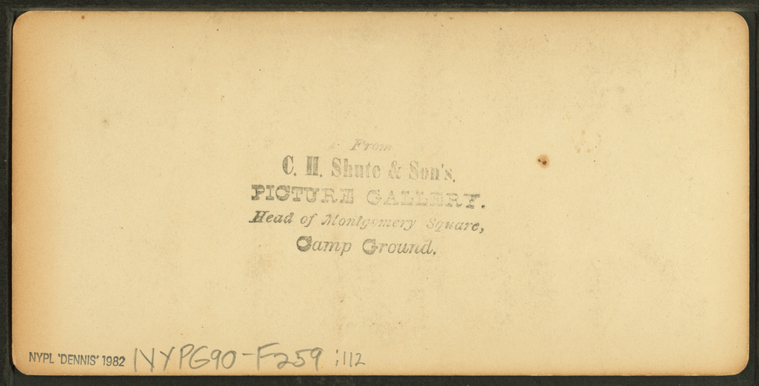 From
C. H. Shute & Son's.
PICTURE GALLERY.
Head of Montgomery Square,
Camp Ground.
NYPL 'DENNIS' 1982 NYPG90-F259 :112